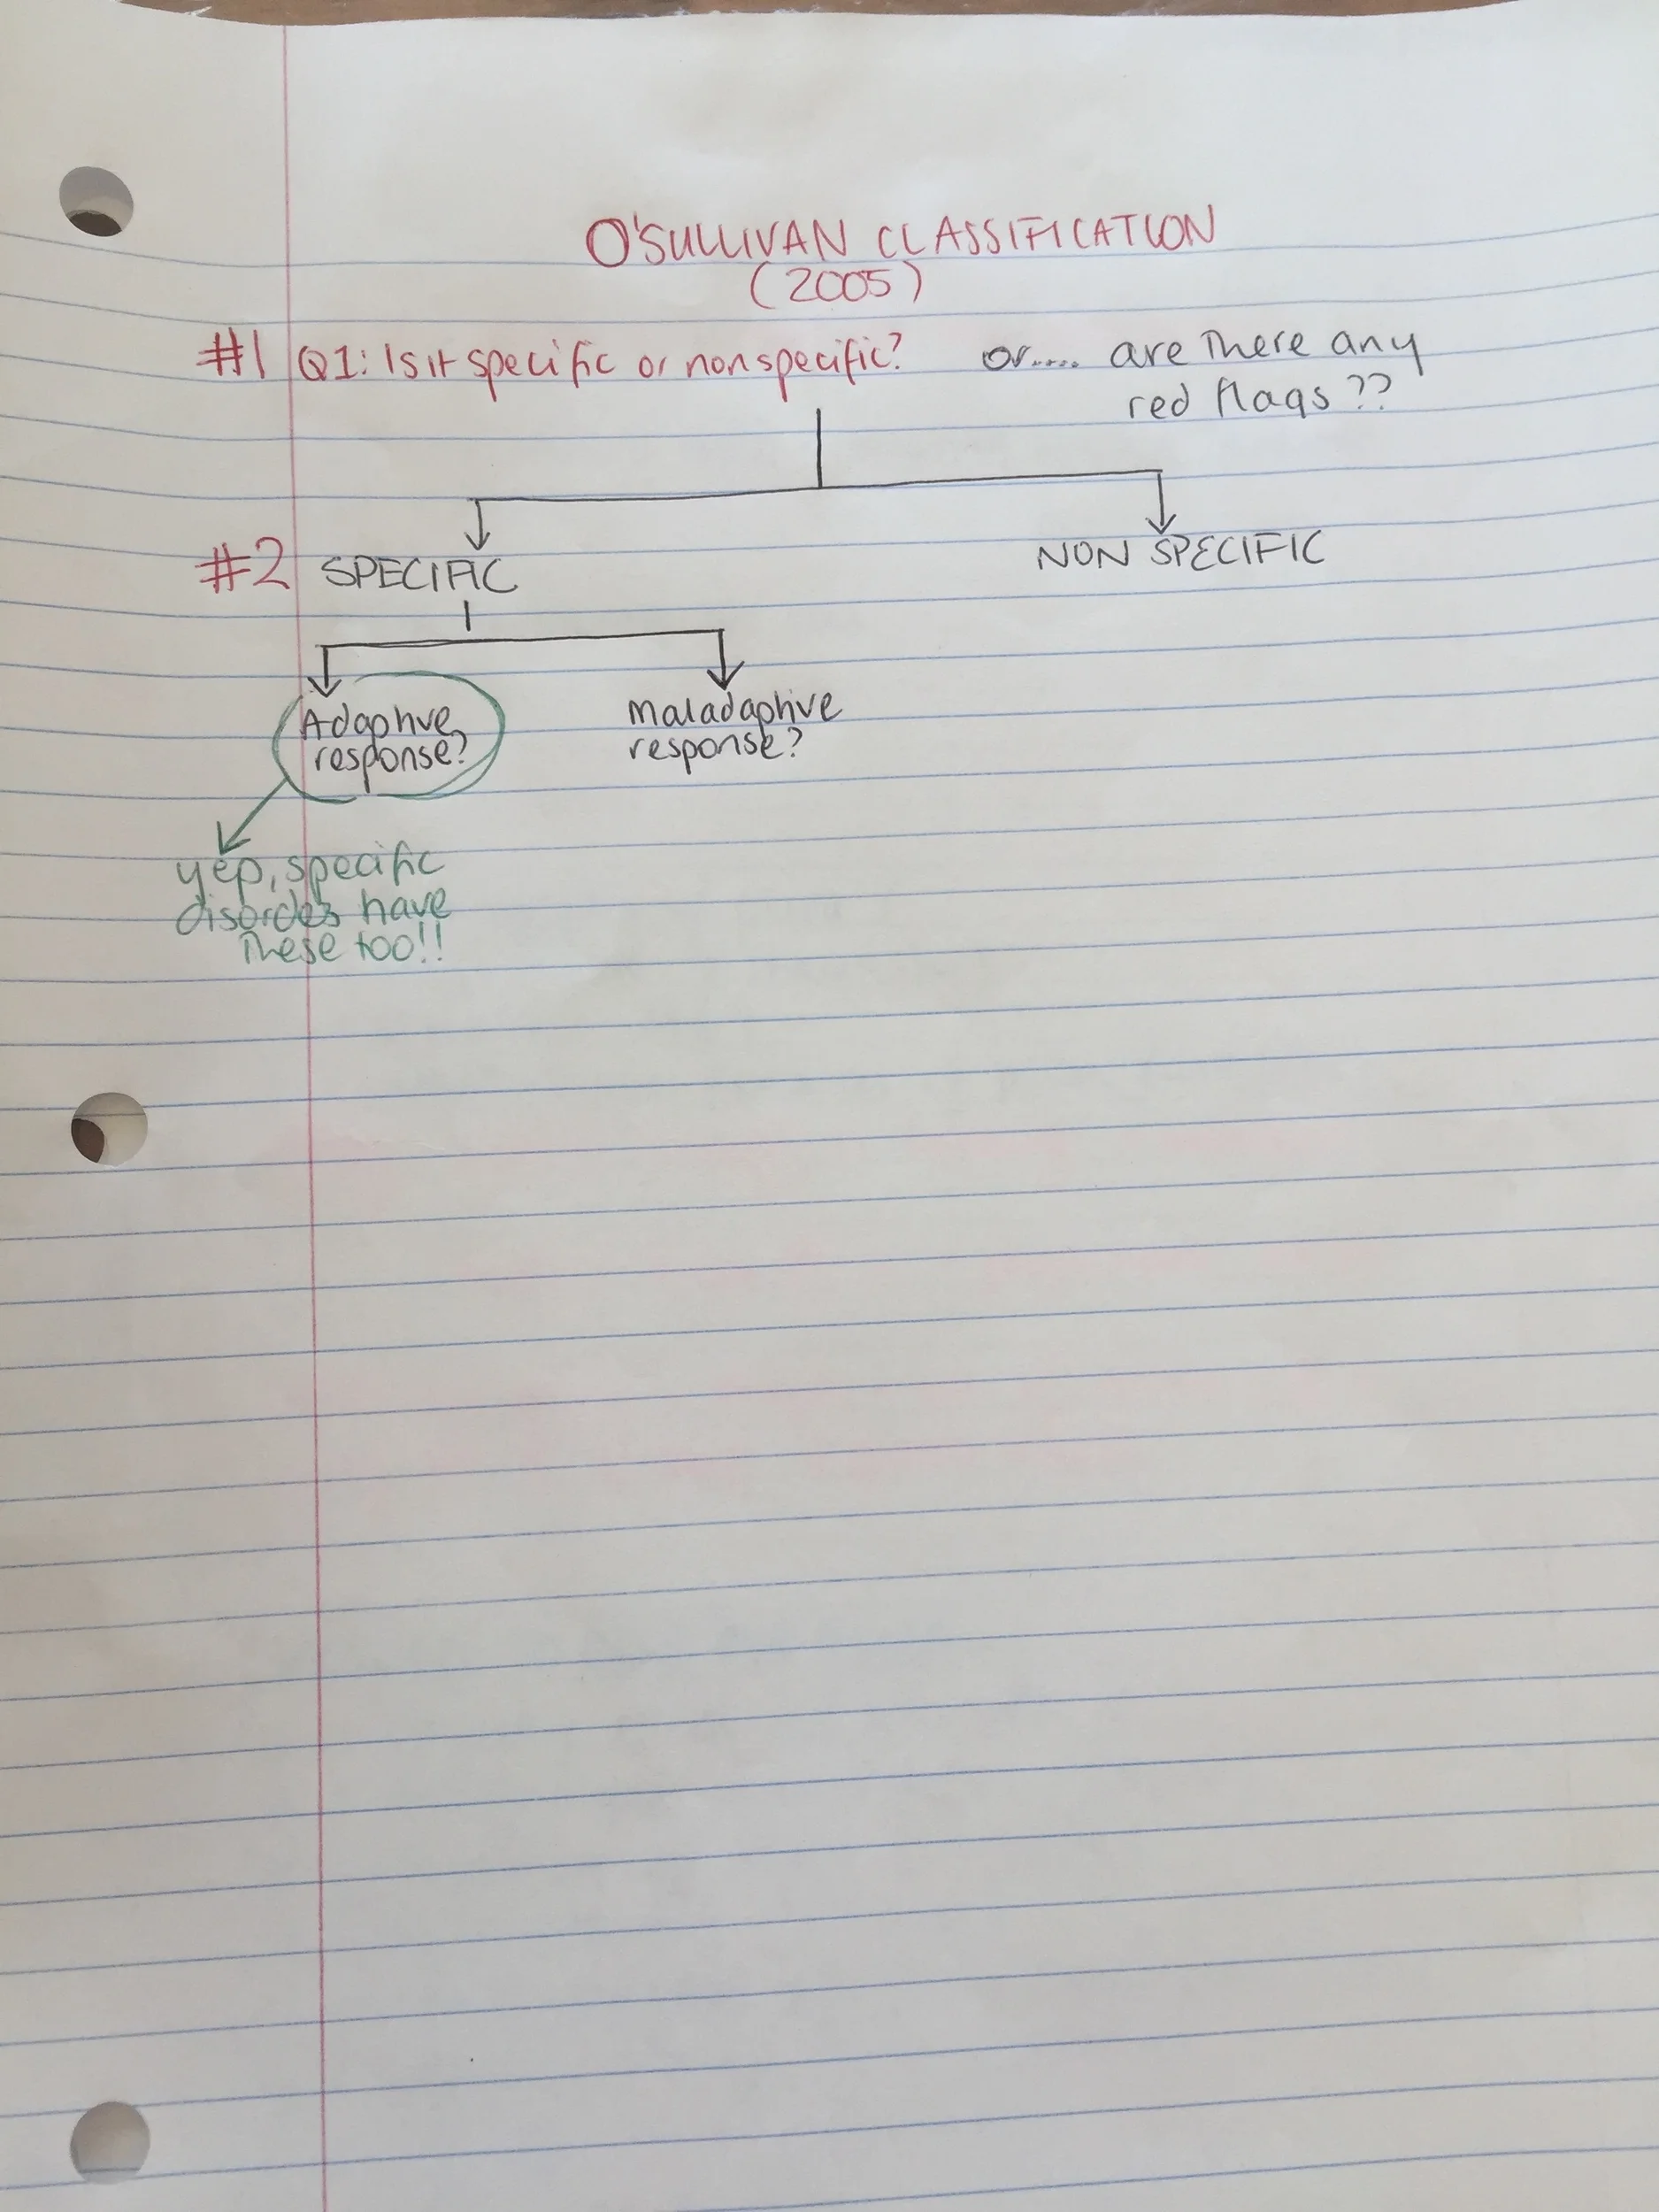 O'SULLIVAN CLASSIFICATION
(2005)
#1 Q1: Is it specific or nonspecific? or..... are there any
red flags??
#2 SPECIFIC
NON SPECIFIC
Adaptive
response?
Maladaptive
response?
yep, specific
disorders have
these too!!